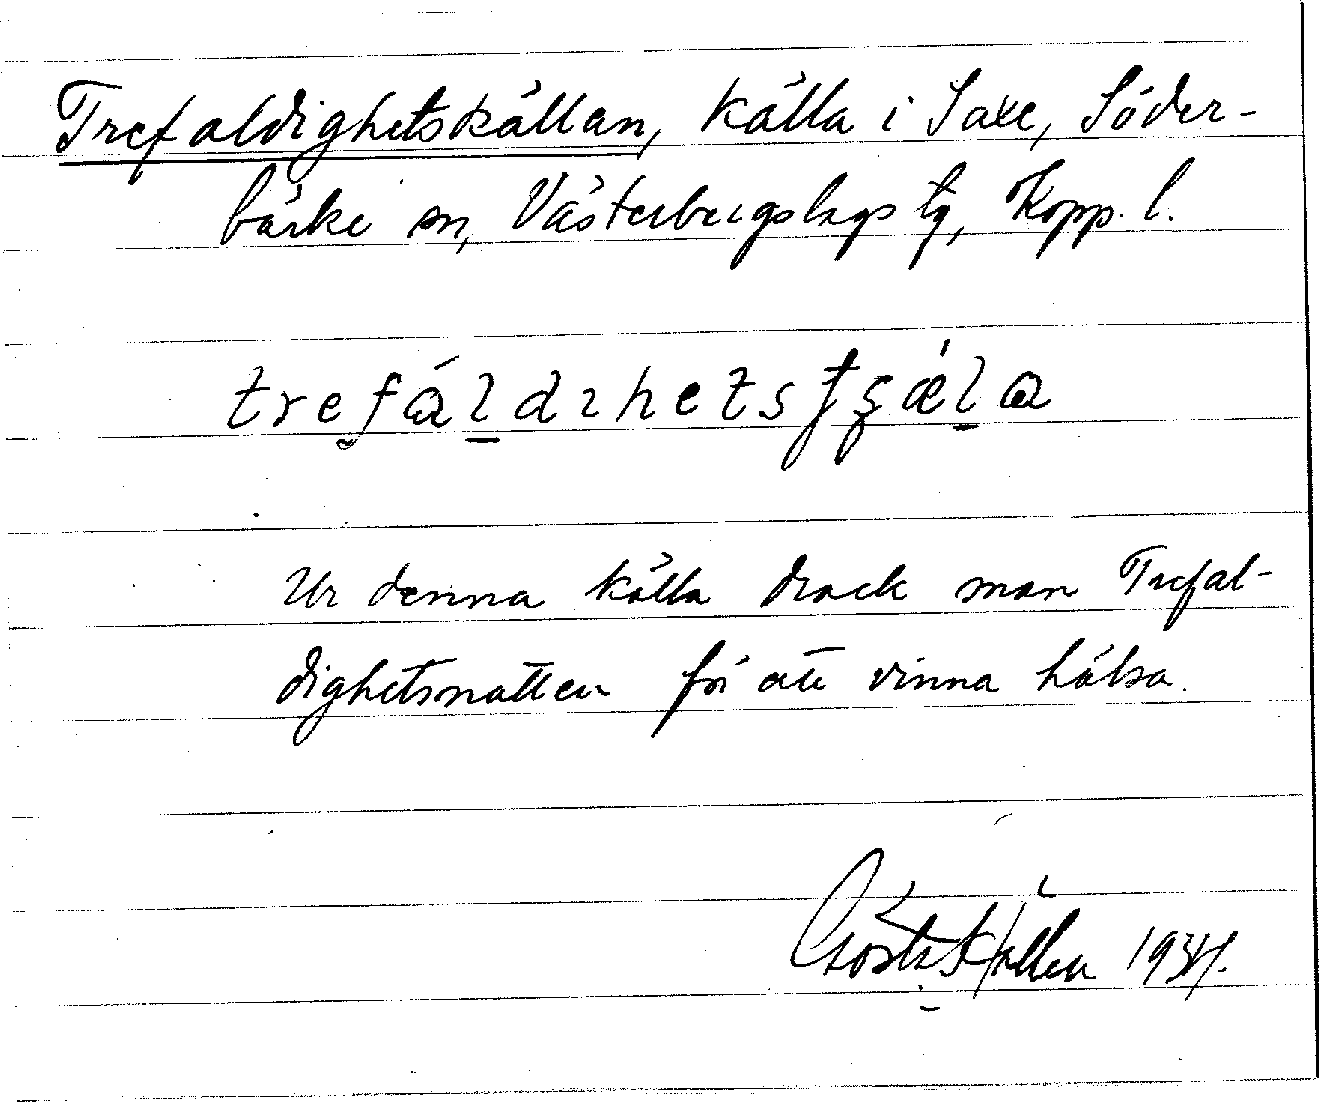 Trefaldighetskällan, källa i Saxe, Söder-
bärke sn, Västerbergslags tg, Kopp. l.
trefáldıhetstʂǽla
Ur denna källa drack man Trefal-
dighetsnatten för att vinna hälsa.
Gösta Källen 1934.